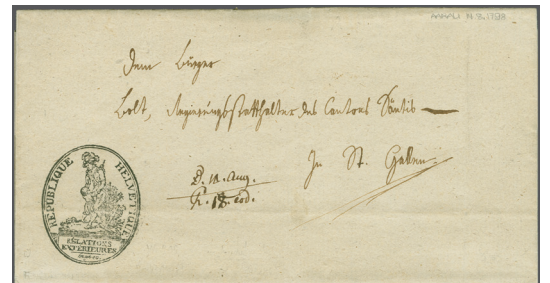 Dem Bürger
Bolt, Regierungsstatthalter des Cantons Säntis
In St. Gallen.
D. 12. Aug.
R. 18. eod.
RÉPUBLIQUE HELVÉTIQUE
RÉLATIONS
EXTÉRIEURES